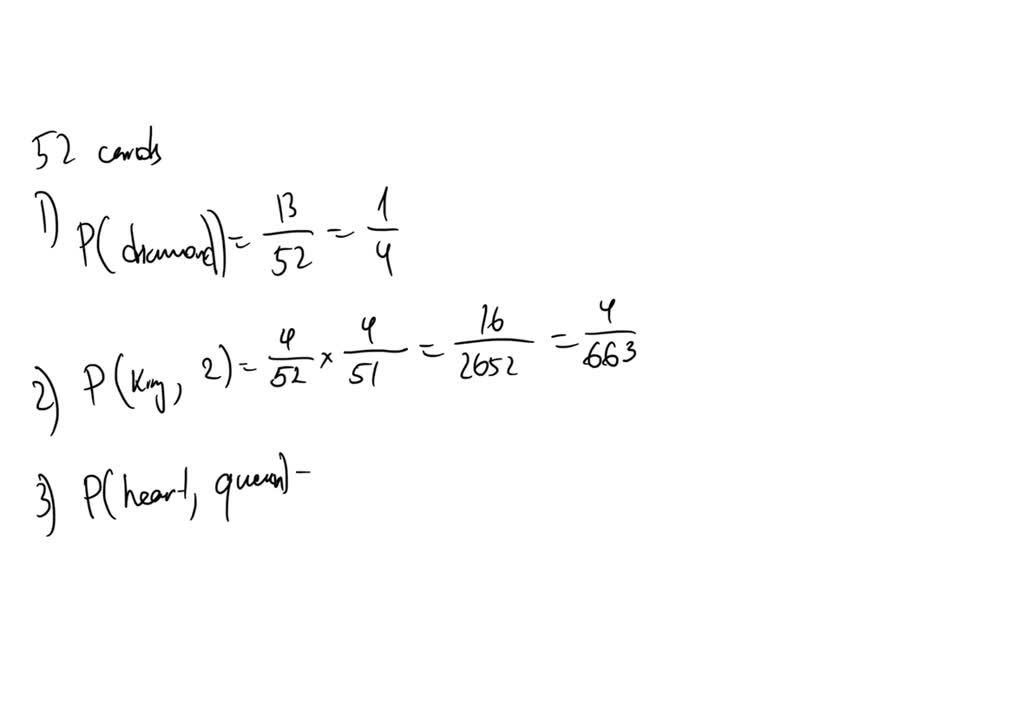 52 cards
1) P(diamond) = 13/52 = 1/4
2) P(King, 2) = 4/52 × 4/51 = 16/2652 = 4/663
3) P(heart, queen) =